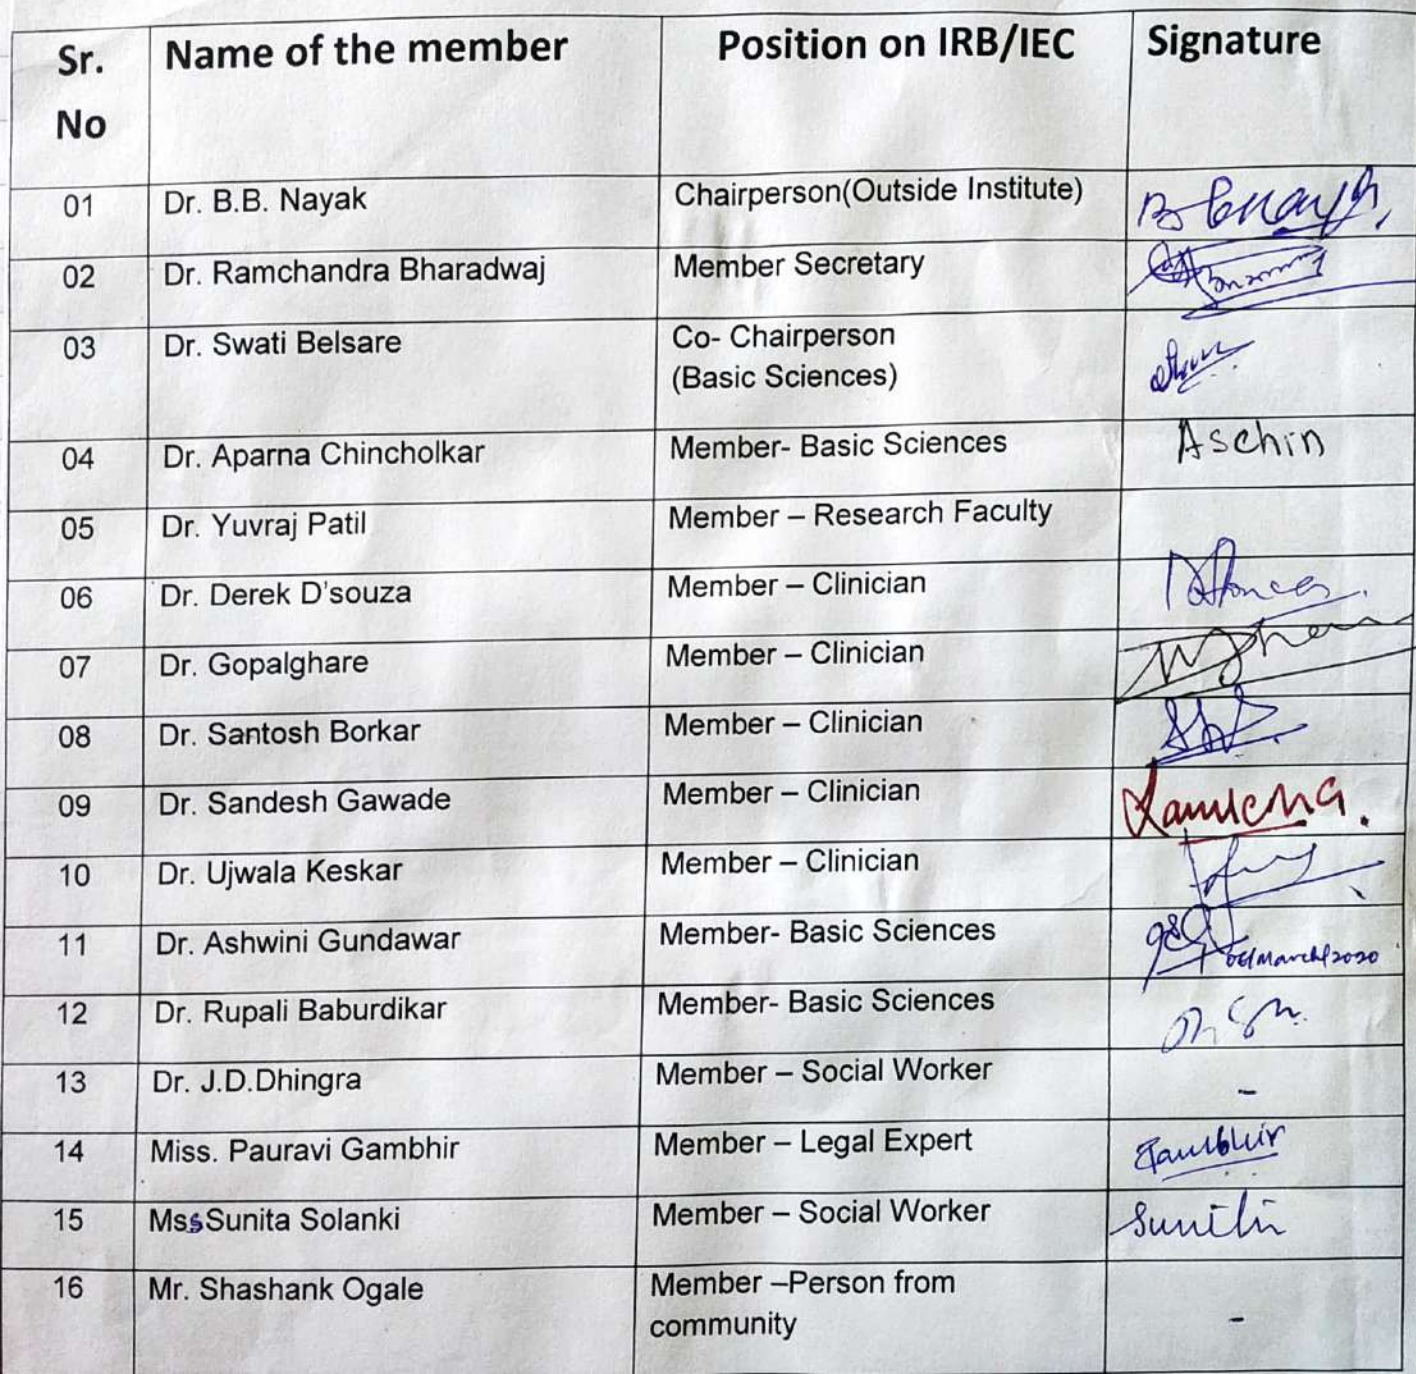 Sr. No Name of the member Position on IRB/IEC Signature
01 Dr. B.B. Nayak Chairperson(Outside Institute)
02 Dr. Ramchandra Bharadwaj Member Secretary
03 Dr. Swati Belsare Co- Chairperson
(Basic Sciences)
04 Dr. Aparna Chincholkar Member- Basic Sciences Aschin
05 Dr. Yuvraj Patil Member – Research Faculty
06 Dr. Derek D'souza Member – Clinician
07 Dr. Gopalghare Member – Clinician
08 Dr. Santosh Borkar Member – Clinician
09 Dr. Sandesh Gawade Member – Clinician
10 Dr. Ujwala Keskar Member – Clinician
11 Dr. Ashwini Gundawar Member- Basic Sciences
12 Dr. Rupali Baburdikar Member- Basic Sciences
13 Dr. J.D.Dhingra Member – Social Worker -
14 Miss. Pauravi Gambhir Member – Legal Expert Gambhir
15 MssSunita Solanki Member – Social Worker
16 Mr. Shashank Ogale Member –Person from
community -